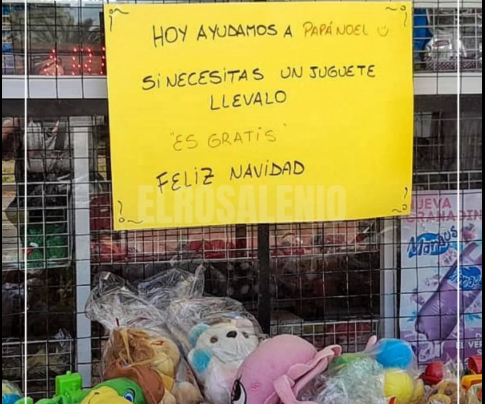 HOY AYUDAMOS A PAPÁ NOEL
SI NECESITAS UN JUGUETE
LLEVALO
"ES GRATIS"
FELIZ NAVIDAD
ELROSALENIO
NUEVA
GRANADINA